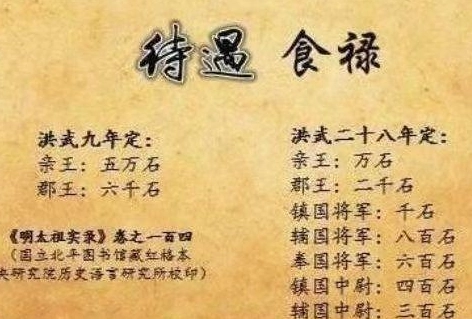 待遇 食禄
洪武九年定:
亲王:五万石
郡王:六千石
《明太祖实录》卷之一百四
(国立北平图书馆藏红格本
央研究院历史语言研究所校印)
洪武二十八年定:
亲王:万石
郡王:二千石
镇国将军:千石
辅国将军:八百石
奉国将军:六百石
镇国中尉:四百石
辅国中尉:三百石